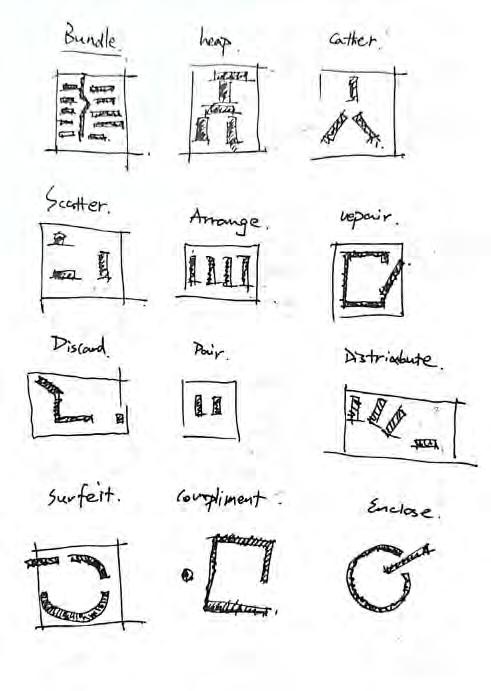 Bundle.
heap.
Gather.
Scatter.
Arrange.
repair.
Discard.
Pair.
Distriabute.
Surfeit.
Compliment.
Enclose.